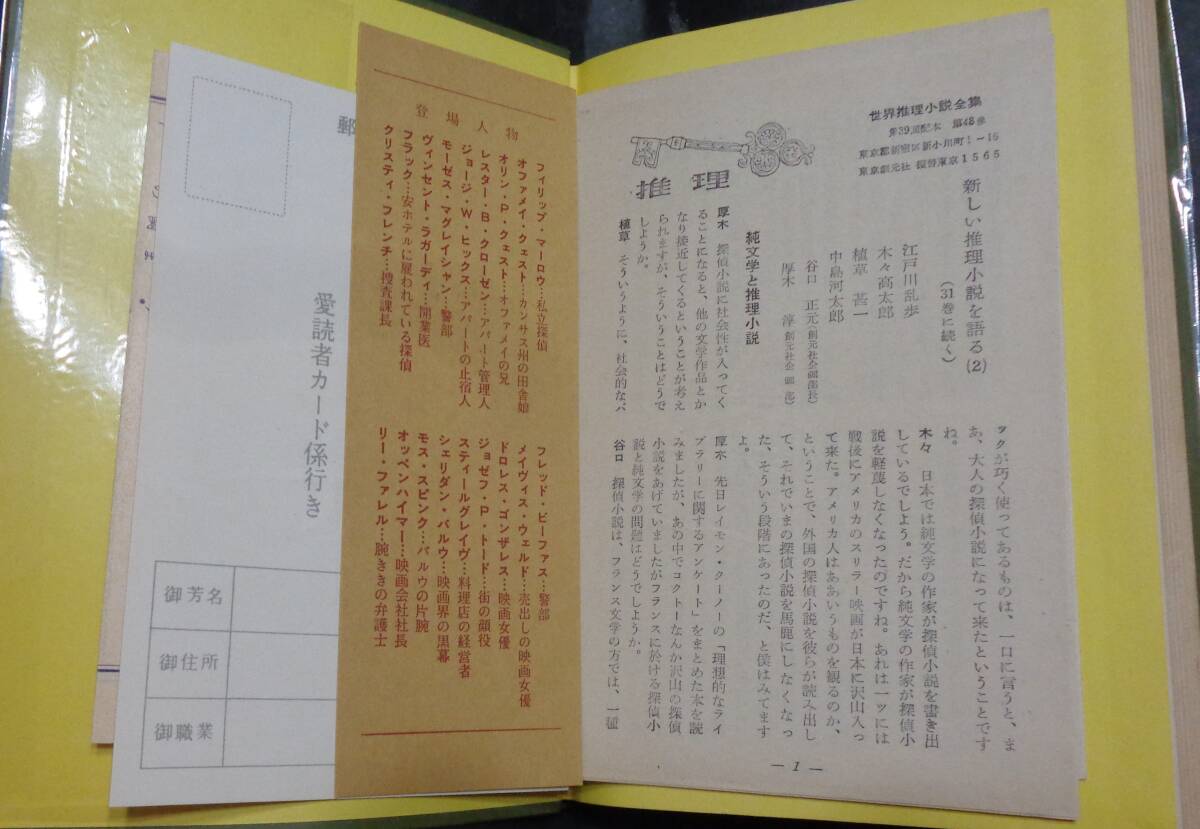 世界推理小説全集
第39回配本 第48巻
東京都新宿区新小川町1〜16
東京創元社 振替東京1565
推理
新しい推理小説を語る(2)
(31巻に続く)
江戸川乱歩
木々高太郎
植草甚一
中島河太郎
谷口正元(創元社企画部長)
厚木淳(創元社企画部)
純文学と推理小説
厚木 探偵小説に社会性が入ってく
ることになると、他の文学作品とか
なり接近してくるということが考え
られますが、そういうことはどうで
しようか。
植草 そういうように、社会的なバ
ックが巧く使ってあるものは、一口に言うと、ま
あ、大人の探偵小説になって来たということです
ね。
木々 日本では純文学の作家が探偵小説を書き出
しているでしよう。だから純文学の作家が探偵小
説を軽蔑しなくなったのですね。あれは一ツには
戦後にアメリカのスリラー映画が日本に沢山入っ
て来た。アメリカ人はああいうものを観るのか、
ということで、外国の探偵小説を彼らが読み出し
て、それでいまの探偵小説を馬鹿にしなくなっ
た、そういう段階にあったのだ、と僕はみてます
よ。
厚木 先日レイモン・クーノーの「理想的なライ
ブラリーに関するアンケート」をまとめた本を読
みましたが、あの中でコクトーなんか沢山の探偵
小説をあげていましたがフランスに於ける探偵小
説と純文学の問題はどうでしようか。
谷口 探偵小説は、フランス文学の方では、一種
— 1 —
登場人物
フィリップ・マーロウ…私立探偵
オファメイ・クェスト…カンサス州の田舎娘
オリン・P・クェスト…オファメイの兄
レスター・B・クローゼン…アパート管理人
ジョージ・W・ヒックス…アパートの止宿人
モーゼス・マグレイシャン…警部
ヴィンセント・ラガーディ…開業医
フラック…安ホテルに雇われている探偵
クリスティ・フレンチ…捜査課長
フレッド・ビーファス…警部
メイヴィス・ウェルド…売出しの映画女優
ドロレス・ゴンザレス…映画女優
ジョゼフ・P・トード…街の顔役
スティールグレイヴ…料理店の経営者
シェリダン・バルウ…映画界の黒幕
モス・スピンク…バルウの片腕
オッペンハイマー…映画会社社長
リー・ファレル…腕ききの弁護士
郵
愛読者カード係行き
御芳名
御住所
御職業